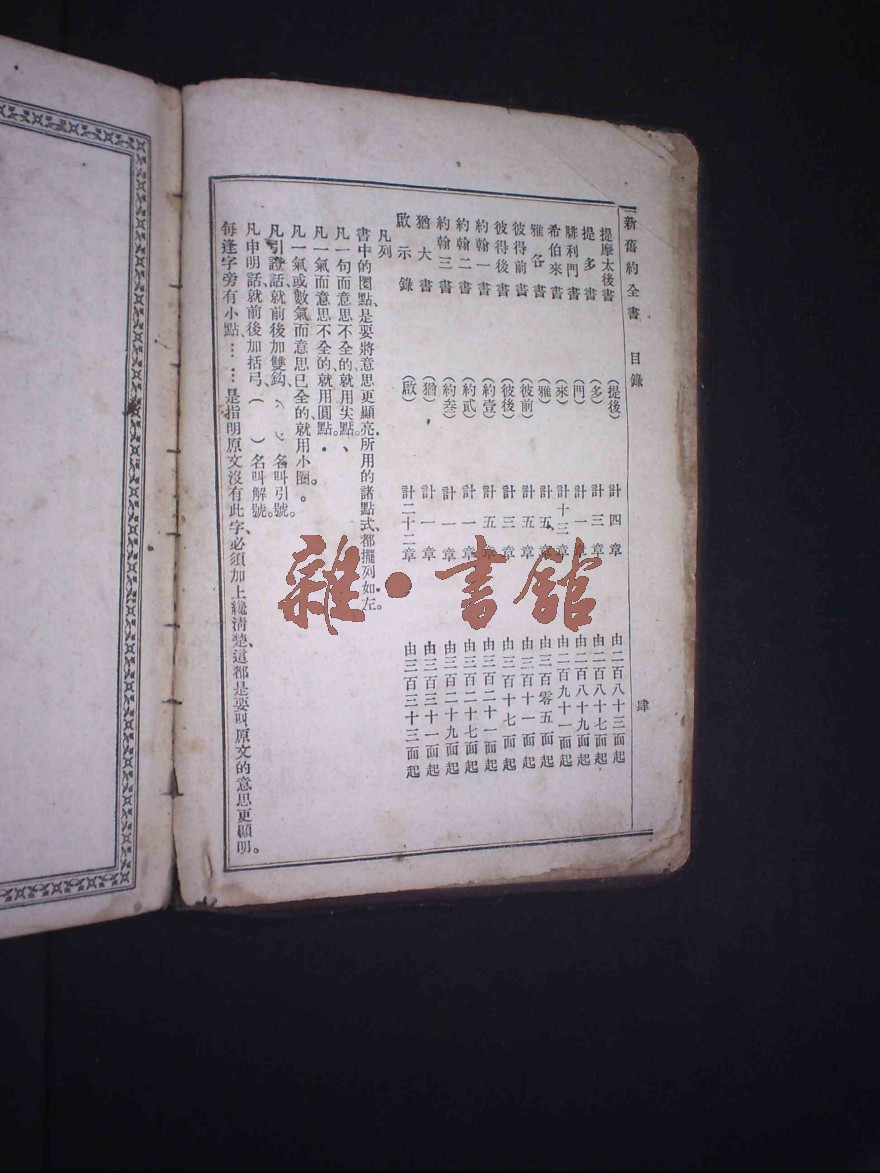 新舊約全書 目錄 肆
提摩太後書 (提後) 計四章 由二百八十三面起
提多書 (多) 計三章 由二百八十七面起
腓利門書 (門) 計一章 由二百八十九面起
希伯來書 (來) 計十三章 由二百九十一面起
雅各書 (雅) 計五章 由三百零五面起
彼得前書 (彼前) 計五章 由三百十一面起
彼得後書 (彼後) 計三章 由三百十七面起
約翰一書 (約壹) 計五章 由三百二十一面起
約翰二書 (約貳) 計一章 由三百二十七面起
約翰三書 (約叁) 計一章 由三百二十九面起
猶大書 (猶) 計一章 由三百三十一面起
啟示錄 (啟) 計二十二章 由三百三十三面起
凡列
書中的圈點、是要將意思更顯亮．所用的諸點式、都擺列如左。
凡一句而意思不全的、就用尖點。、
凡一氣而意思不全的、就用圓點．
凡一氣或數氣而意思已全的、就用小圈。。
凡引證話、就前後加雙鈎、 名叫引號。
凡申明話、就前後加括弓、( )名叫解號。
每逢字旁有小點、……是指明原文沒有此字、必須加上纔清楚、這都是要叫原文的意思更顯明。
雜·書館